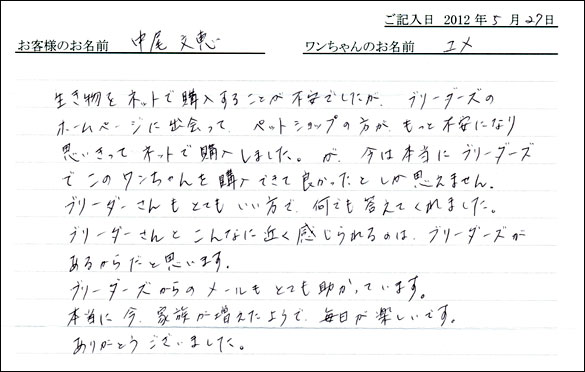 ご記入日 2012年5月27日
お客様のお名前 中尾 文恵 ワンちゃんのお名前 ユメ
生き物をネットで購入することが不安でしたが、ブリーダーズの
ホームページに出会って、ペットショップの方が、もっと不安になり
思いきってネットで購入しました。が、今は本当にブリーダーズ
でこのワンちゃんを購入できて良かったとしか思えません。
ブリーダーさんもとてもいい方で、何でも答えてくれました。
ブリーダーさんとこんなに近く感じられるのは、ブリーダーズが
あるからだと思います。
ブリーダーズからのメールもとても助かっています。
本当に今、家族が増えたようで、毎日が楽しいです。
ありがとうございました。